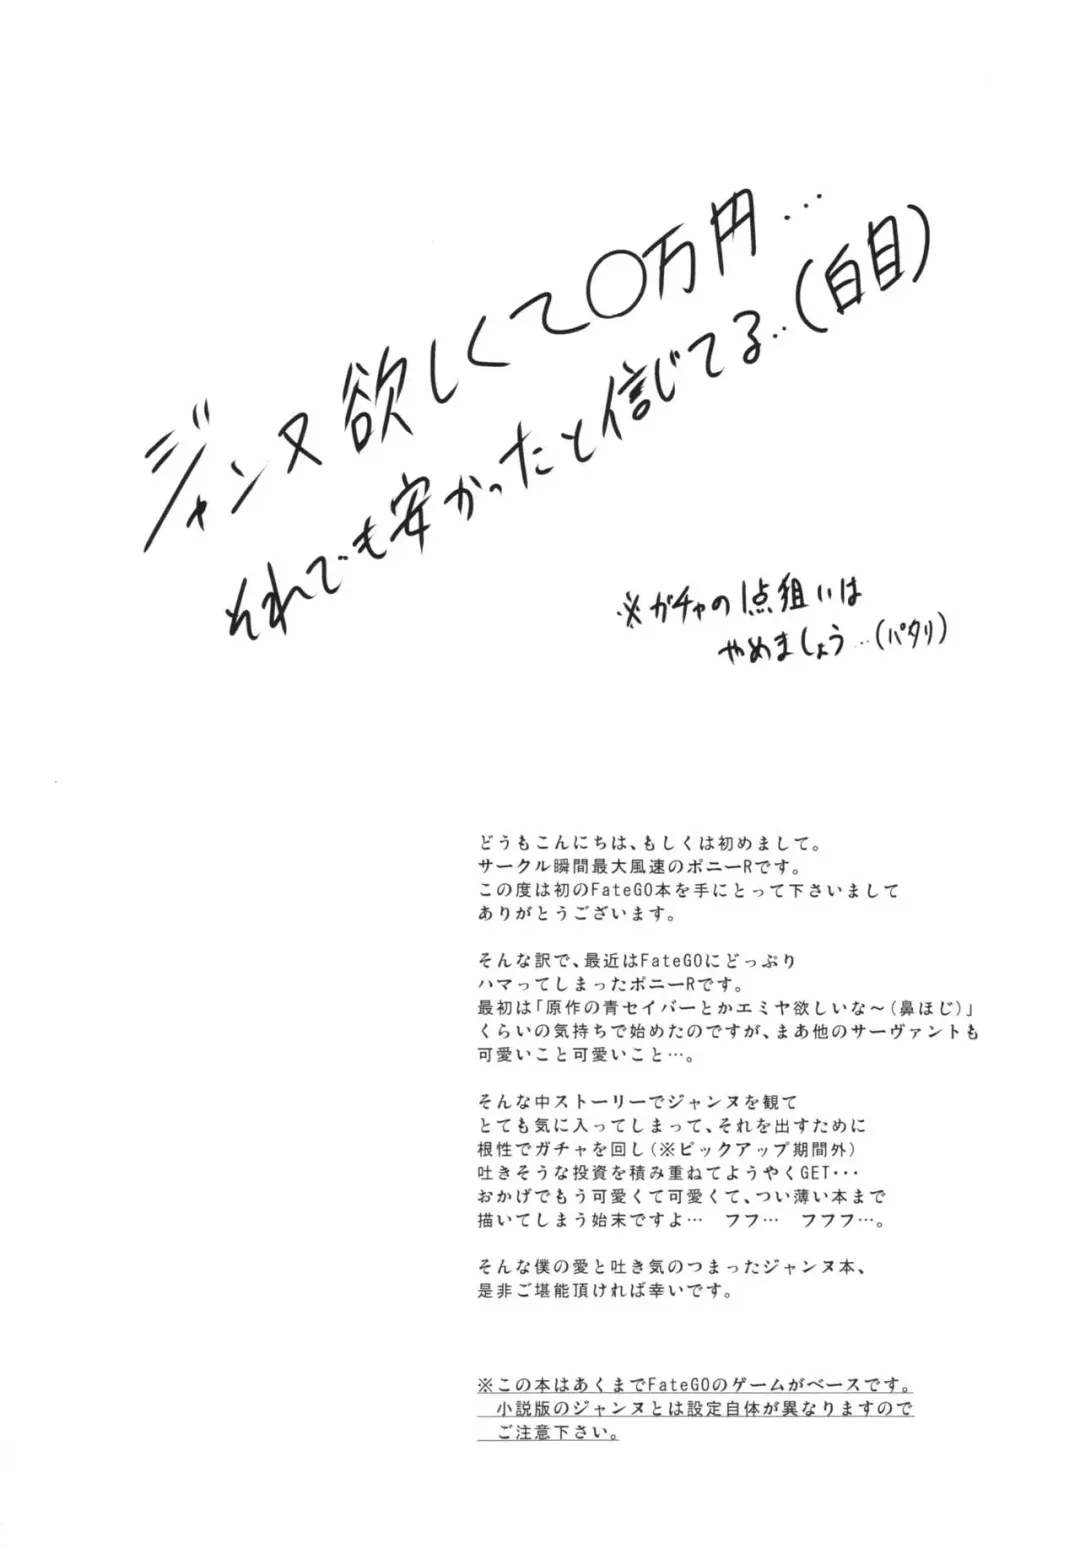 ジャンヌ欲しくて〇万円…
それでも安かったと信じてる…(白目)
※ガチャの1点狙いは
やめましょう…(パタリ)
どうもこんにちは、もしくは初めまして。
サークル瞬間最大風速のポニーRです。
この度は初のFateGO本を手にとって下さいまして
ありがとうございます。
そんな訳で、最近はFateGOにどっぷり
ハマってしまったポニーRです。
最初は「原作の青セイバーとかエミヤ欲しいな～(鼻ほじ)」
くらいの気持ちで始めたのですが、まあ他のサーヴァントも
可愛いこと可愛いこと…。
そんな中ストーリーでジャンヌを観て
とても気に入ってしまって、それを出すために
根性でガチャを回し(※ピックアップ期間外)
吐きそうな投資を積み重ねてようやくGET・・・
おかげでもう可愛くて可愛くて、つい薄い本まで
描いてしまう始末ですよ…　フフ…　フフフ…。
そんな僕の愛と吐き気のつまったジャンヌ本、
是非ご堪能頂ければ幸いです。
※この本はあくまでFateGOのゲームがベースです。
小説版のジャンヌとは設定自体が異なりますので
ご注意下さい。